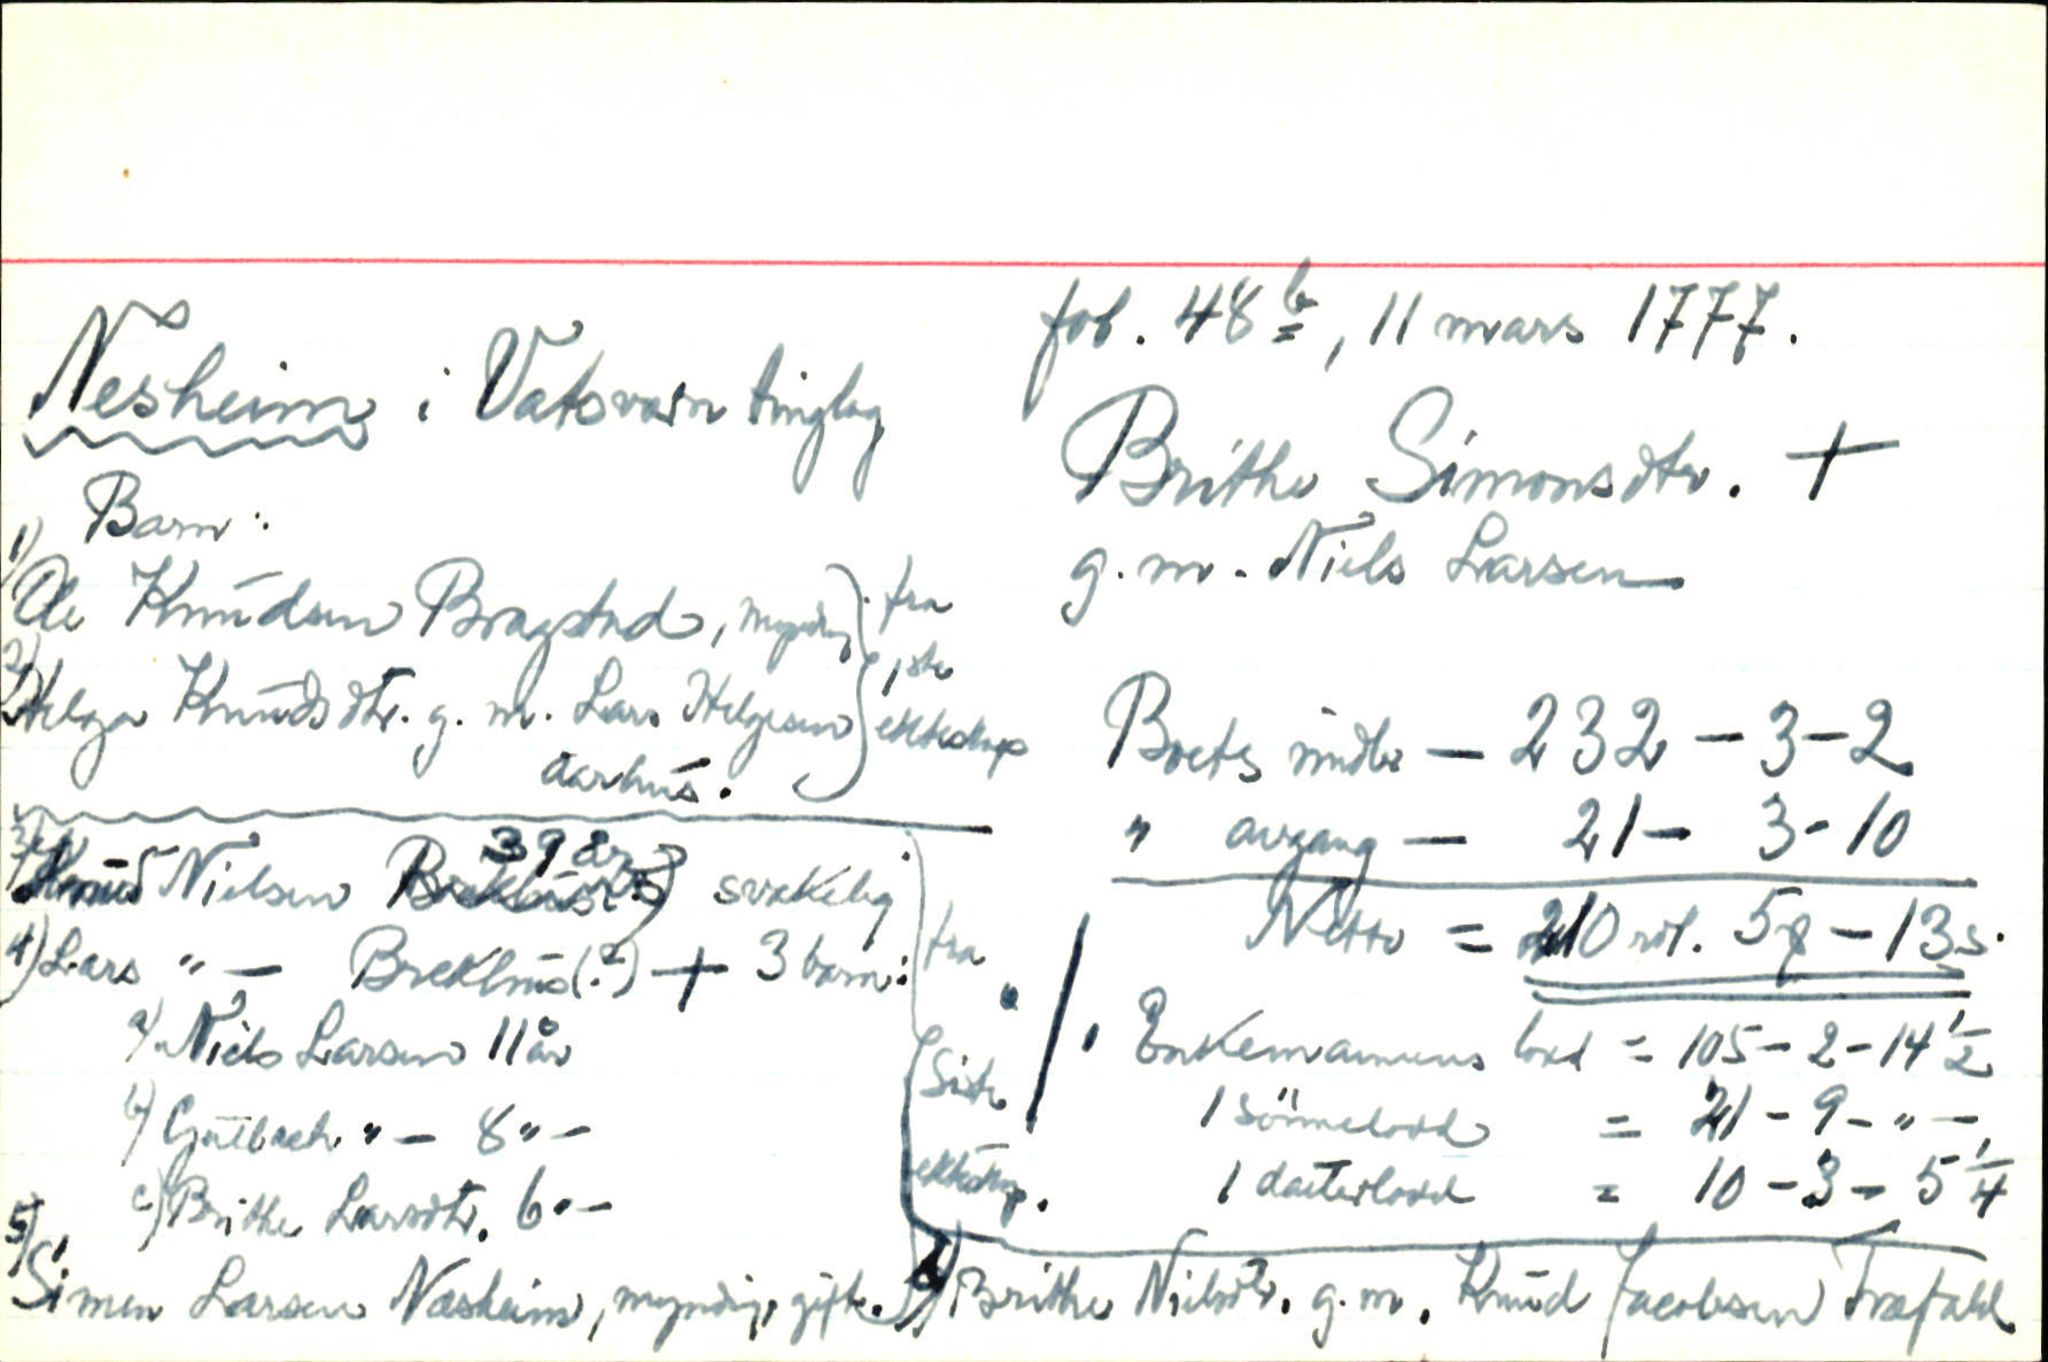 Nesheim i Vatsvain tinglag
fol. 48 b, 11 mars 1777.
Brithe Simonsdtr. +
g. m. Niels Larsen
Barn:
1) Ole Knudsen Bragstad, myndig
2) Helga Knudsdtr. g. m. Lars Helgesen
Aarhus.
fra
1ste
ekteskap
Boets midler — 232 — 3 — 2
" avgang — 21 — 3 - 10
Netto = 210 rdl. 5 — 13 s.
Enkemannens lodd = 105 — 2 — 14 1/2
1 sönnelodd = 21 - 9 - " -
1 datterlodd = 10 - 3 - 5 1/4
39 år
3) Knud Nielsen svakelig
4) Lars " — Brekhus (?) + 3 barn:
a) Niels Larsen 11 år
b) " — 8 " —
c) Brithe Larsdtr. 6 " —
fra
siste
ekteskap.
5) Simen Larsen Næsheim, myndig, gift.
6) Brithe Nielsdtr. g. m. Knud Jacobsen Træfald